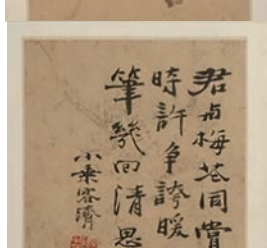 君与梅花同賞
時許争誇暖
筆幾回清思
小乗客濟